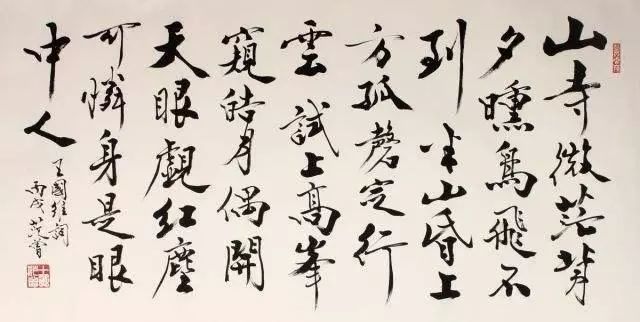 山寺微茫背
夕曛鳥飛不
到半山昏上
方孤磬定行
雲試上高峯
窺皓月偶開
天眼覷紅塵
可憐身是眼
中人
王國維詞
丙戌范曾